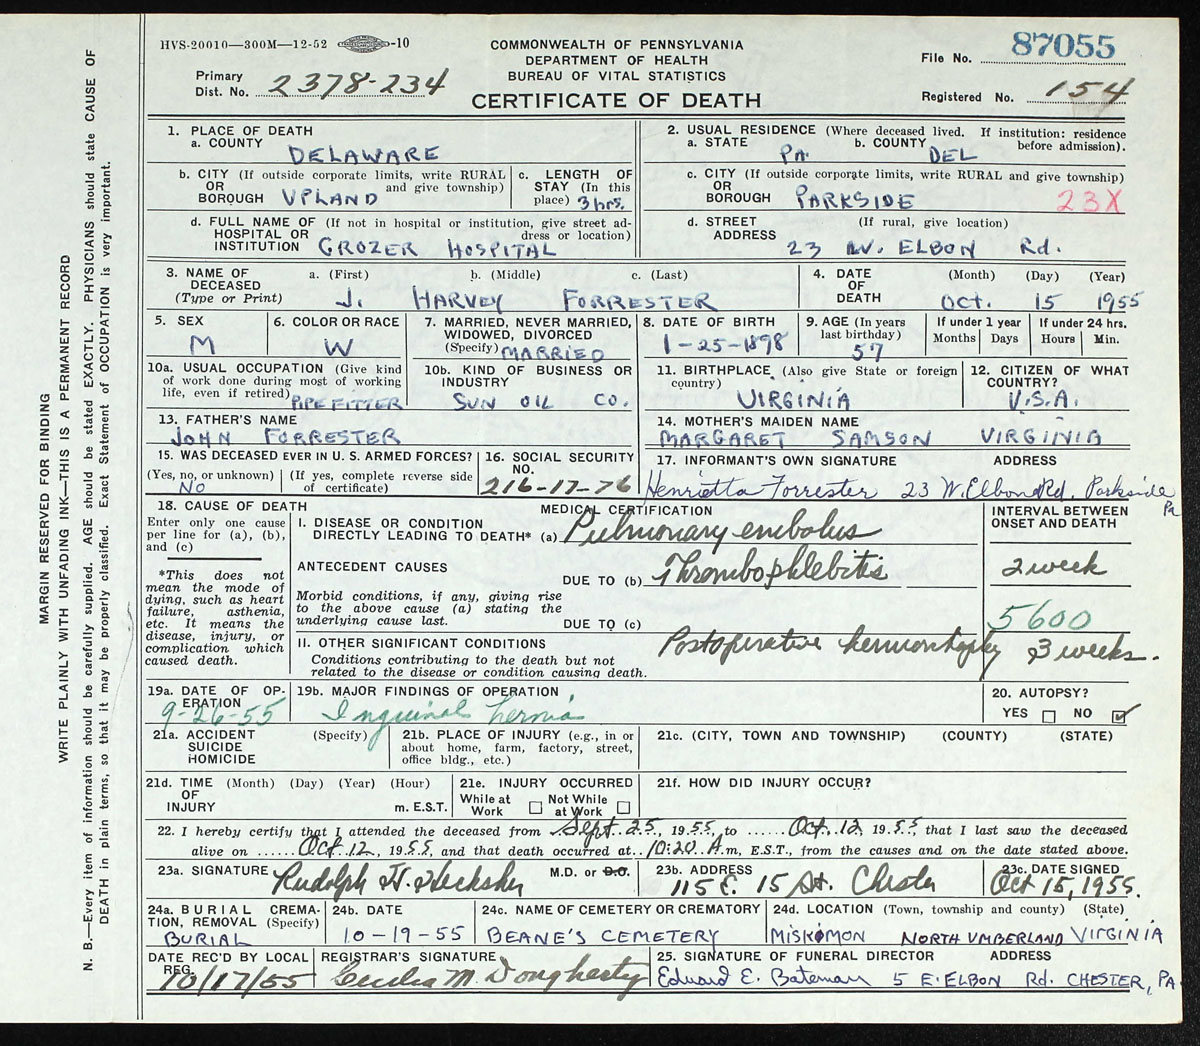 HVS-20010—300M—12-52 -10
COMMONWEALTH OF PENNSYLVANIA
DEPARTMENT OF HEALTH
BUREAU OF VITAL STATISTICS
CERTIFICATE OF DEATH
File No. 87055
Primary
Dist. No. 2378-234
Registered No. 154
MARGIN RESERVED FOR BINDING
WRITE PLAINLY WITH UNFADING INK—THIS IS A PERMANENT RECORD
N. B.—Every item of information should be carefully supplied. AGE should be stated EXACTLY. PHYSICIANS should state CAUSE OF
DEATH in plain terms, so that it may be properly classified. Exact Statement of OCCUPATION is very important.
1. PLACE OF DEATH
a. COUNTY DELAWARE
2. USUAL RESIDENCE (Where deceased lived. If institution: residence
before admission).
a. STATE PA. b. COUNTY DEL
b. CITY (If outside corporate limits, write RURAL
OR and give township)
BOROUGH UPLAND
c. LENGTH OF
STAY (In this
place) 3 hrs.
c. CITY (If outside corporate limits, write RURAL and give township)
OR
BOROUGH PARKSIDE 23X
d. FULL NAME OF (If not in hospital or institution, give street ad-
HOSPITAL OR dress or location)
INSTITUTION CROZER HOSPITAL
d. STREET (If rural, give location)
ADDRESS 23 W. ELBON Rd.
3. NAME OF a. (First) b. (Middle) c. (Last)
DECEASED
(Type or Print) J. HARVEY FORRESTER
4. DATE (Month) (Day) (Year)
OF
DEATH Oct. 15 1955
5. SEX
M
6. COLOR OR RACE
W
7. MARRIED, NEVER MARRIED,
WIDOWED, DIVORCED
(Specify) MARRIED
8. DATE OF BIRTH
1-25-1898
9. AGE (In years
last birthday)
57
If under 1 year
Months Days
If under 24 hrs.
Hours Min.
10a. USUAL OCCUPATION (Give kind
of work done during most of working
life, even if retired) PIPE FITTER
10b. KIND OF BUSINESS OR
INDUSTRY
SUN OIL CO.
11. BIRTHPLACE (Also give State or foreign
country)
VIRGINIA
12. CITIZEN OF WHAT
COUNTRY?
U.S.A.
13. FATHER'S NAME
JOHN FORRESTER
14. MOTHER'S MAIDEN NAME
MARGARET SAMSON VIRGINIA
15. WAS DECEASED EVER IN U. S. ARMED FORCES?
(Yes, no, or unknown) (If yes, complete reverse side
NO of certificate)
16. SOCIAL SECURITY
NO.
216-17-76
17. INFORMANT'S OWN SIGNATURE ADDRESS
Henrietta Forrester 23 W. Elbon Rd, Parkside
Pa
18. CAUSE OF DEATH
Enter only one cause
per line for (a), (b),
and (c)
*This does not
mean the mode of
dying, such as heart
failure, asthenia,
etc. It means the
disease, injury, or
complication which
caused death.
MEDICAL CERTIFICATION
I. DISEASE OR CONDITION
DIRECTLY LEADING TO DEATH* (a) Pulmonary embolus
ANTECEDENT CAUSES
DUE TO (b) Thrombophlebitis
Morbid conditions, if any, giving rise
to the above cause (a) stating the
underlying cause last. DUE TO (c)
II. OTHER SIGNIFICANT CONDITIONS
Conditions contributing to the death but not
related to the disease or condition causing death.
Postoperative
INTERVAL BETWEEN
ONSET AND DEATH
2 week
5600
3 weeks.
19a. DATE OF OP-
ERATION
9-26-55
19b. MAJOR FINDINGS OF OPERATION
Inguinal hernia
20. AUTOPSY?
YES NO
21a. ACCIDENT (Specify)
SUICIDE
HOMICIDE
21b. PLACE OF INJURY (e.g., in or
about home, farm, factory, street,
office bldg., etc.)
21c. (CITY, TOWN AND TOWNSHIP) (COUNTY) (STATE)
21d. TIME (Month) (Day) (Year) (Hour)
OF
INJURY m. E.S.T.
21e. INJURY OCCURRED
While at Not While
Work at Work
21f. HOW DID INJURY OCCUR?
22. I hereby certify that I attended the deceased from Sept. 25, 1955, to Oct. 12, 1955, that I last saw the deceased
alive on Oct 12, 1955, and that death occurred at 10:20 A.m, E.S.T., from the causes and on the date stated above.
23a. SIGNATURE Rudolph M.D. or D.O.
23b. ADDRESS
115 E. 15 St. Chester
23c. DATE SIGNED
Oct 15, 1955.
24a. BURIAL CREMA-
TION, REMOVAL (Specify)
BURIAL
24b. DATE
10-19-55
24c. NAME OF CEMETERY OR CREMATORY
BEANE'S CEMETERY
24d. LOCATION (Town, township and county) (State)
MISKIMON NORTHUMBERLAND VIRGINIA
DATE REC'D BY LOCAL
REG.
10/17/55
REGISTRAR'S SIGNATURE
Cecelia M. Dougherty
25. SIGNATURE OF FUNERAL DIRECTOR ADDRESS
Edward E. Bateman 5 E. ELBON Rd. CHESTER, PA